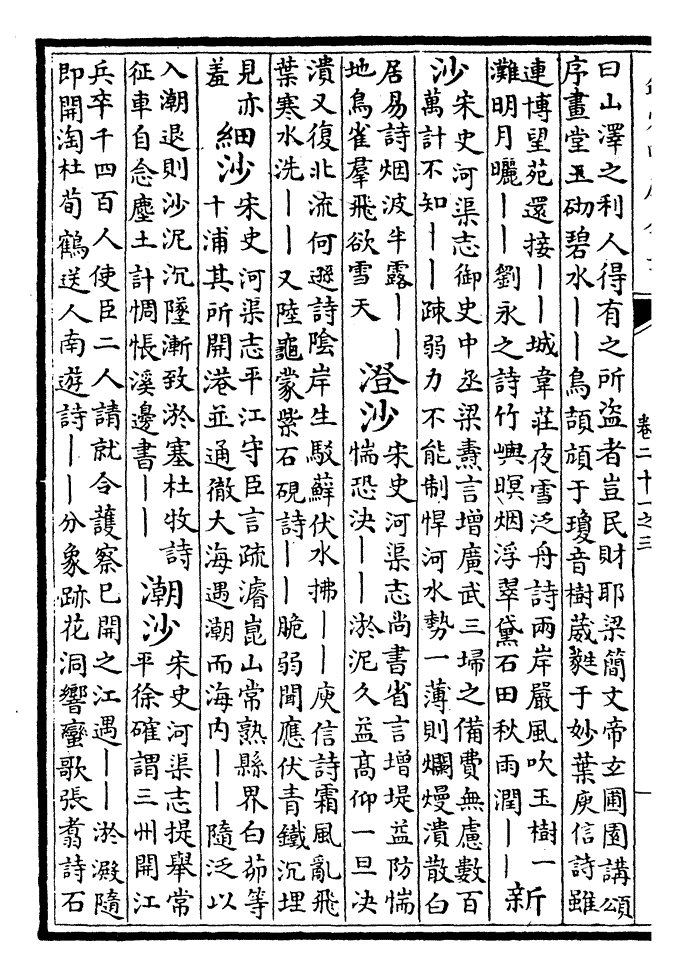 卷二十一之三
曰山澤之利人得有之所盜者豈民財耶梁簡文帝玄圃園講頌
序畫堂玉砌碧水——鳥頡頏于瓊音樹葳蕤于妙葉庾信詩雖
連博望苑還接——城韋莊夜雪泛舟詩兩岸嚴風吹玉樹一
灘明月曬——劉永之詩竹嶼暝烟浮翠黛石田秋雨潤——
新
沙
宋史河渠志御史中丞梁燾言增廣武三埽之備費無慮數百
萬計不知——疎弱力不能制悍河水勢一薄則爛熳潰散白
居易詩烟波半露——
地鳥雀羣飛欲雪天
澄沙
宋史河渠志尚書省言增堤益防惴
惴恐決——淤泥久益高仰一旦決
潰又復北流何遜詩陰岸生駁蘚伏水拂——庾信詩霜風亂飛
葉寒水洗——又陸龜蒙紫石硯詩——脆弱聞應伏青鐵沉埋
見亦
羞
細沙
宋史河渠志平江守臣言疏濬崑山常熟縣界白茆等
十浦其所開港並通徹大海遇潮而海内——隨泛以
入潮退則沙泥沉墜漸致淤塞杜牧詩
征車自念塵土計惆悵溪邊書——
潮沙
宋史河渠志提舉常
平徐確謂三州開江
兵卒千四百人使臣二人請就合護察已開之江遇——淤澱隨
即開淘杜荀鶴送人南遊詩——分象跡花洞響蠻歌張翥詩石